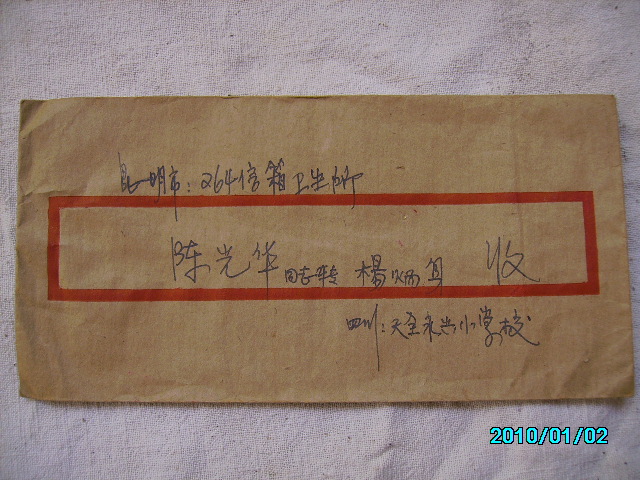 昆明市：264信箱卫生所
陈光华同志转 楊炳且 收
四川：天全永兴小学校
2010/01/02